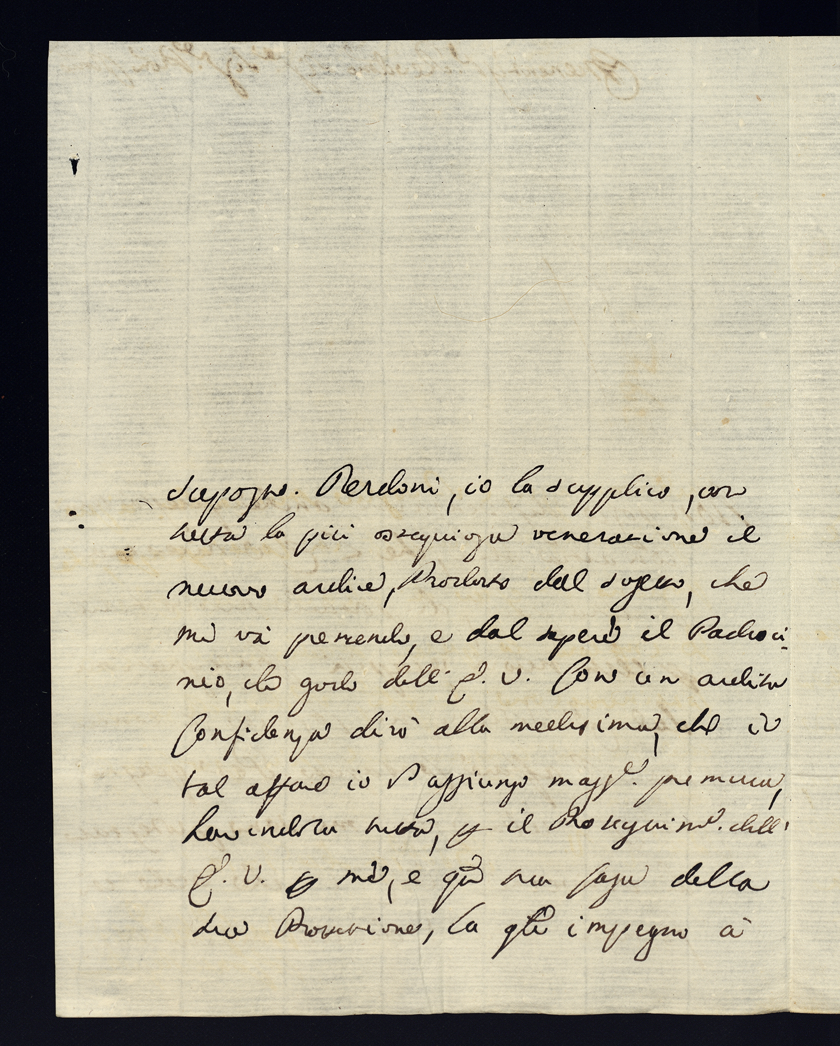 supogno. Perdoni, io la supplico, con
tutta la più ossequiosa venerazione il
nuovo ardire, Prodotto dal sogetto, che
mi và premendo, e dal sapere il Padroci-
nio, che gode dell' E. V. Con un ardita
Confidenza dirò alla medesima, che in
tal affare io V'aggiungo magg.e premura,
havendola tutta, p il Proseguim.to dell'
E. V. p me, e qta sua
della
sua Protezione, la qle impegno à